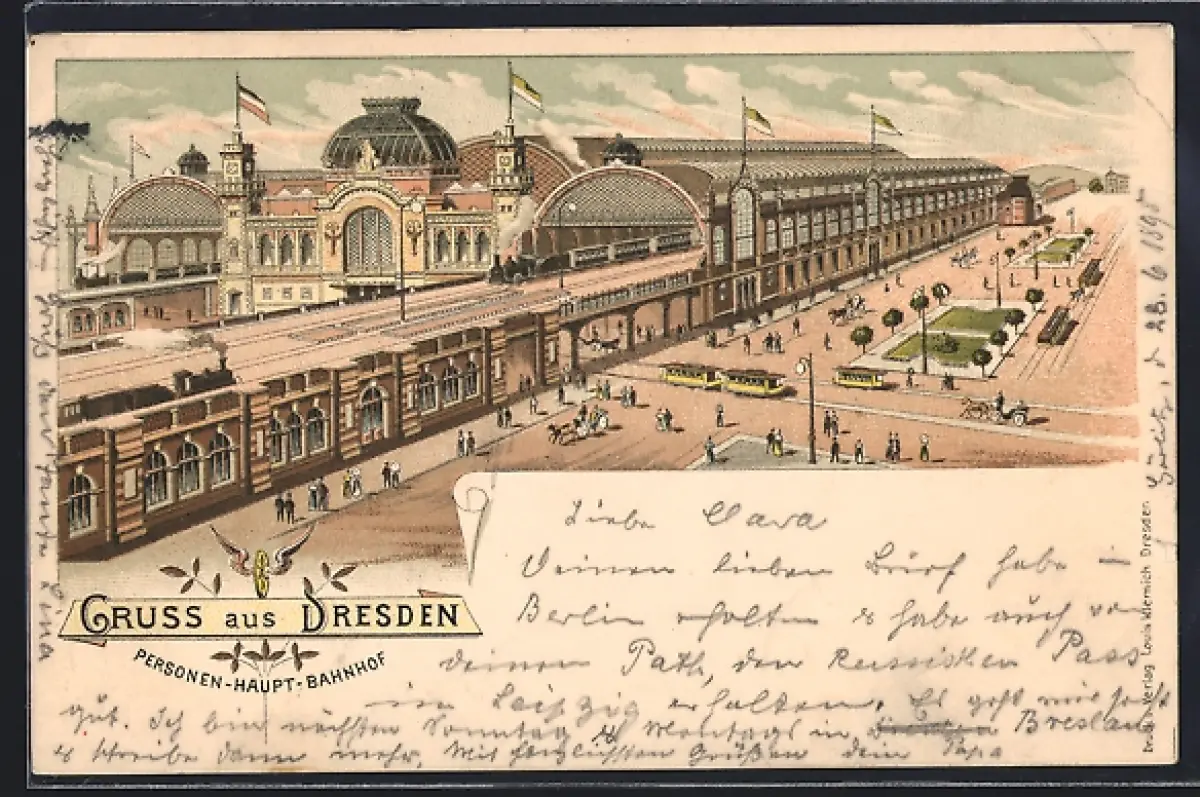 GRUSS aus DRESDEN
PERSONEN-HAUPT-BAHNHOF
Liebe Clara
Deinen lieben Brief habe in
Berlin erhalten & habe auch von
deinem Path, den Russischen Pass
in Leipzig erhalten. Es geht mir sehr
gut. Ich bin nächsten Sonntag & Montags in Breslau
& schreibe dann mehr. Mit herzlichsten Grüßen dein Papa
d 28. 6 1895
Gruß Tante Lina
Druck u. Verlag Louis Glermich Dresden.